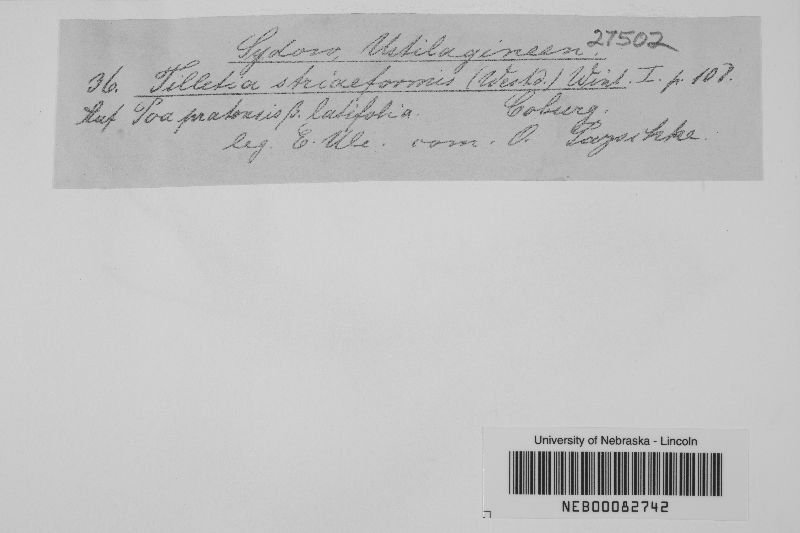 Sydow, Ustilagineen. 27502
36. Tilletia striaeformis (Westd.) Wint. I. p. 108.
Auf Poa pratensis β. latifolia. Coburg.
leg. E. Ule. com. O. Pazschke.
University of Nebraska - Lincoln
NEB00082742